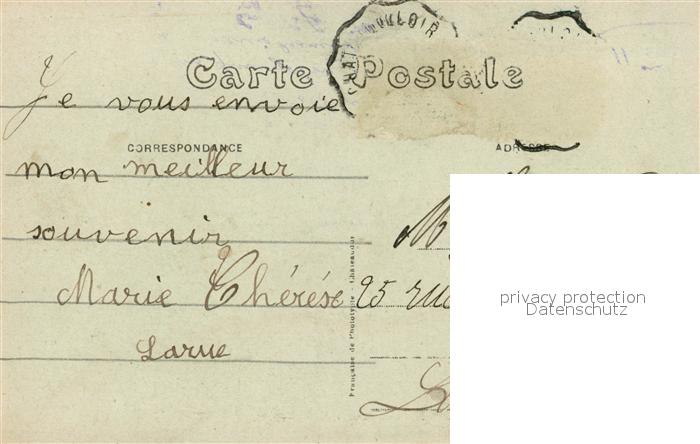 Carte Postale
Je vous envoie
CORRESPONDANCE
ADRESSE
mon meilleur
souvenir
Marie Thérése
Larue
95 rue
Française de Phototypie - Châteaudun
privacy protection
Datenschutz